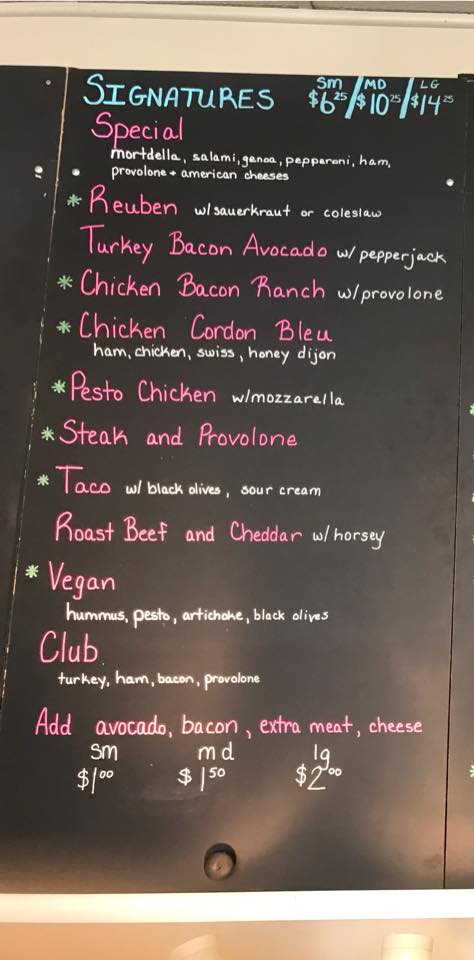 SIGNATURES Sm $6.25/MD $10.25/LG $14.25
Special
mortdella, salami, genoa, pepperoni, ham,
provolone + american cheeses
* Reuben w/sauerkraut or coleslaw
Turkey Bacon Avocado w/ pepperjack
* Chicken Bacon Ranch w/provolone
* Chicken Cordon Bleu
ham, chicken, swiss, honey dijon
* Pesto Chicken w/mozzarella
* Steak and Provolone
* Taco w/ black olives, sour cream
Roast Beef and Cheddar w/ horsey
* Vegan
hummus, pesto, artichoke, black olives
Club
turkey, ham, bacon, provolone
Add avocado, bacon, extra meat, cheese
Sm md lg
$1.00 $1.50 $2.00